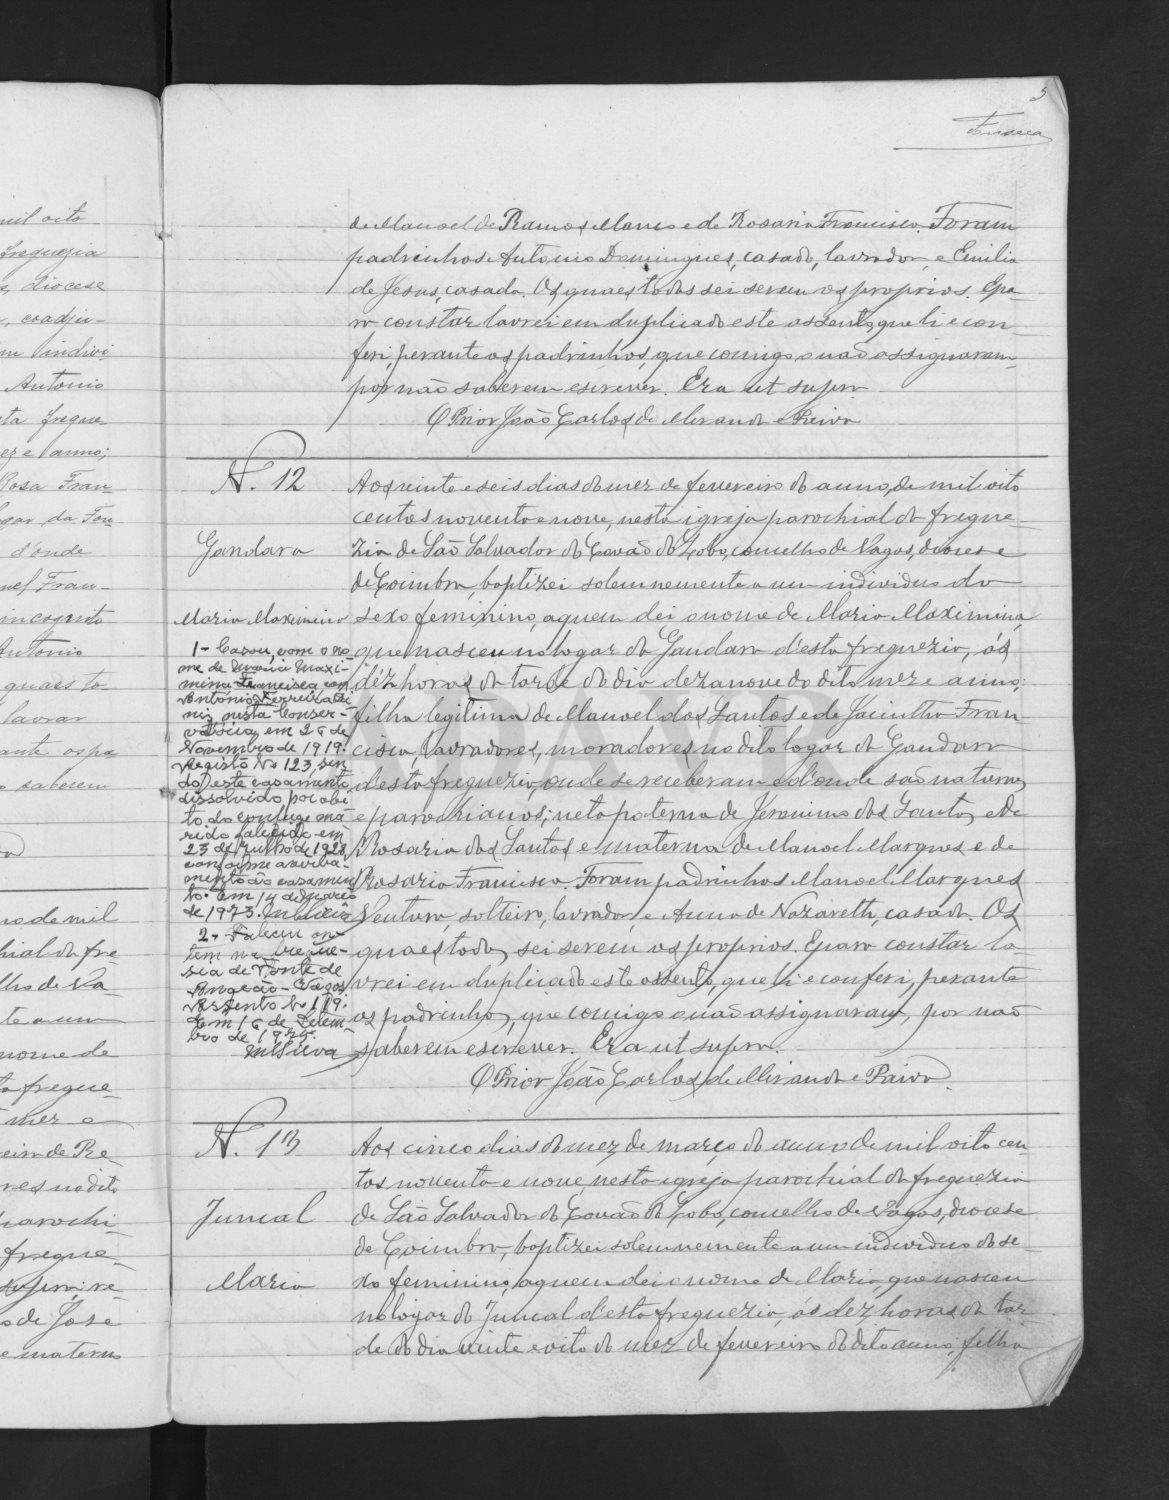 5
Fonseca
de Manoel de Ramos Manco e de Rosaria Francisca. Foram
padrinhos Antonio Domingues, casado, lavrador, e Emilia
de Jesus, casada. Os quaes todos sei serem os proprios. E pa-
ra constar lavrei em duplicado este assento, que li e con-
feri, perante os padrinhos, que comigo o não assignaram,
por não saberem escrever. Era ut supra
O Prior João Carlos de Miranda e Paiva
N. 12
Gandara
Maria Maximina
Aos vinte e seis dias do mez de fevereiro do anno, de mil oito
centos noventa e nove, nesta igreja parochial da fregue-
zia de São Salvador do Covão do Lobo, concelho de Vagos, diocese
de Coimbra, baptizei solemnemente a um individuo do
sexo feminino, a quem dei o nome de Maria Maximina,
que nasceu no logar da Gandara d'esta freguezia, ás
déz horas da tarde do dia dezanove do dito mez e anno;
filha legitima de Manoel dos Santos e de Jacintha Fran-
cisca, lavradores, moradores no dito logar da Gandara
d'esta freguezia, onde se receberam e d'onde são naturaes
e parochianos; neta paterna de Jeronimo dos Santos e de
Rosaria dos Santos e materna de Manoel Marques e de
Rosaria Francisca. Foram padrinhos Manoel Marques
Ventura, solteiro, lavrador, e Anna de Nazareth, casada. Os
quaes todos sei serem os proprios. E para constar la-
vrei em duplicado este assento, que li e conferi, perante
os padrinhos, que comigo o não assignaram, por não
saberem escrever. Era ut supra.
O Prior João Carlos de Miranda e Paiva
1- Casou, com o no-
me de Maria Maxi-
mina Francisca com
Antonio Ferreira De
niz, nesta Conser-
vatória, em 26 de
Novembro de 1919.
Registo No 123, sen
do este casamento
dissolvido por óbi
to do conjuge ma-
rido falecido em
23 de Julho de 1928,
conforme averba-
mento ao casamen
to. Em 14 de março
de 1973.
2- Faleceu on-
tem na fregue-
sia de Ponte de
Vagos
Assento No 119.
Em 16 de Dezem-
bro de 1975.
MSilva
N. 13
Juncal
Maria
Aos cinco dias do mez de março do anno de mil oito cen-
tos noventa e nove, nesta igreja parochial da freguezia
de São Salvador do Covão do Lobo, concelho de Vagos, diocese
de Coimbra, baptizei solemnemente a um individuo do se-
xo feminino, a quem dei o nome de Maria, que nasceu
no logar do Juncal d'esta freguezia, ás dez horas da tar
de do dia vinte e oito do mez de fevereiro do dito anno; filha
mil oito
freguezia
diocese
coadju-
m indivi
Antonio
ta fregue
ez e anno;
Rosa Fran-
gar da Fon
d'onde
nel Fran-
incognito
Antonio
quaes to
lavrar
ante os pa
saberem
no de mil
hial da fre-
lho de Va-
te a um
nome de
ta fregue-
mez e
eira de Re-
res no dito
parochi
fregue-
de José
e materna
ADAVR